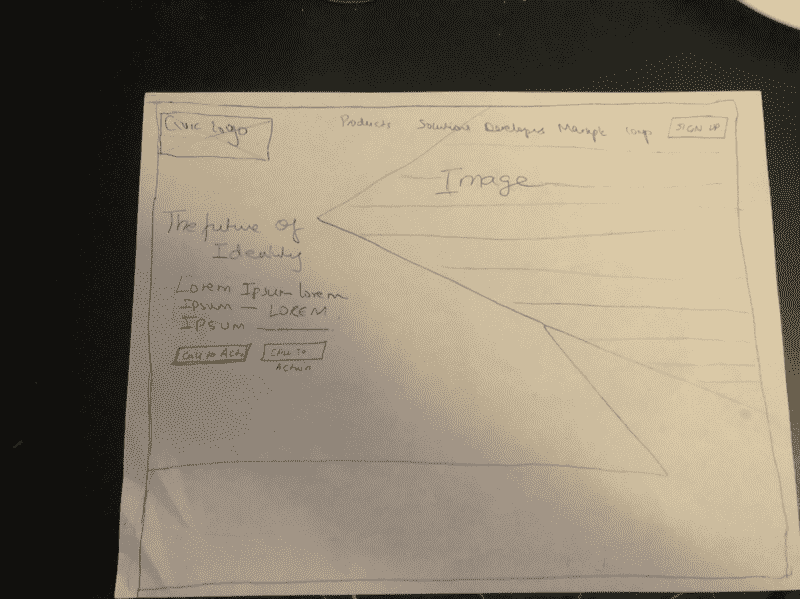 Civic Logo
Products Solutions Developers SIGN UP
Image
The future of
Idenlity
Lorem Ipsum lorem
Ipsum — LOREM
IPSUM
Call to Actn Call To
Action